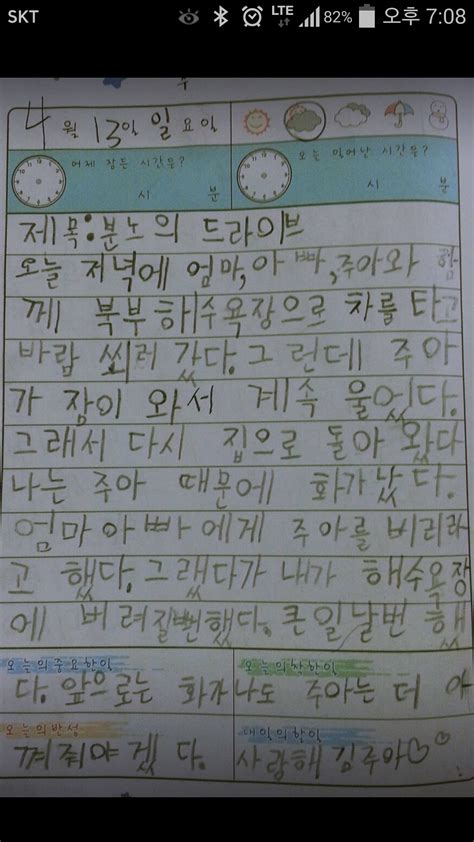 SKT LTE 82% 오후 7:08
4월 13일 일요일
어제 잠든 시간은? 오늘 일어난 시간은?
시 분 시 분
제목:분노의 드라이브
오늘 저녁에 엄마,아빠,주아와 함
께 북부해수욕장으로 차를 타고
바람 쐬러 갔다.그런데 주아
가 잠이 와서 계속 울었다.
그래서 다시 집으로 돌아 왔다
나는 주아 때문에 화가 났다.
엄마 아빠에게 주아를 버리라
고 했다.그랬다가 내가 해수욕장
에 버려질뻔했다.큰일날번 했
오늘의중요한일 오늘의착한일
다. 앞으로는 화가나도 주아는 더 아
오늘의반성 내일의할일
껴줘야겠다. 사랑해 김주아♡♡